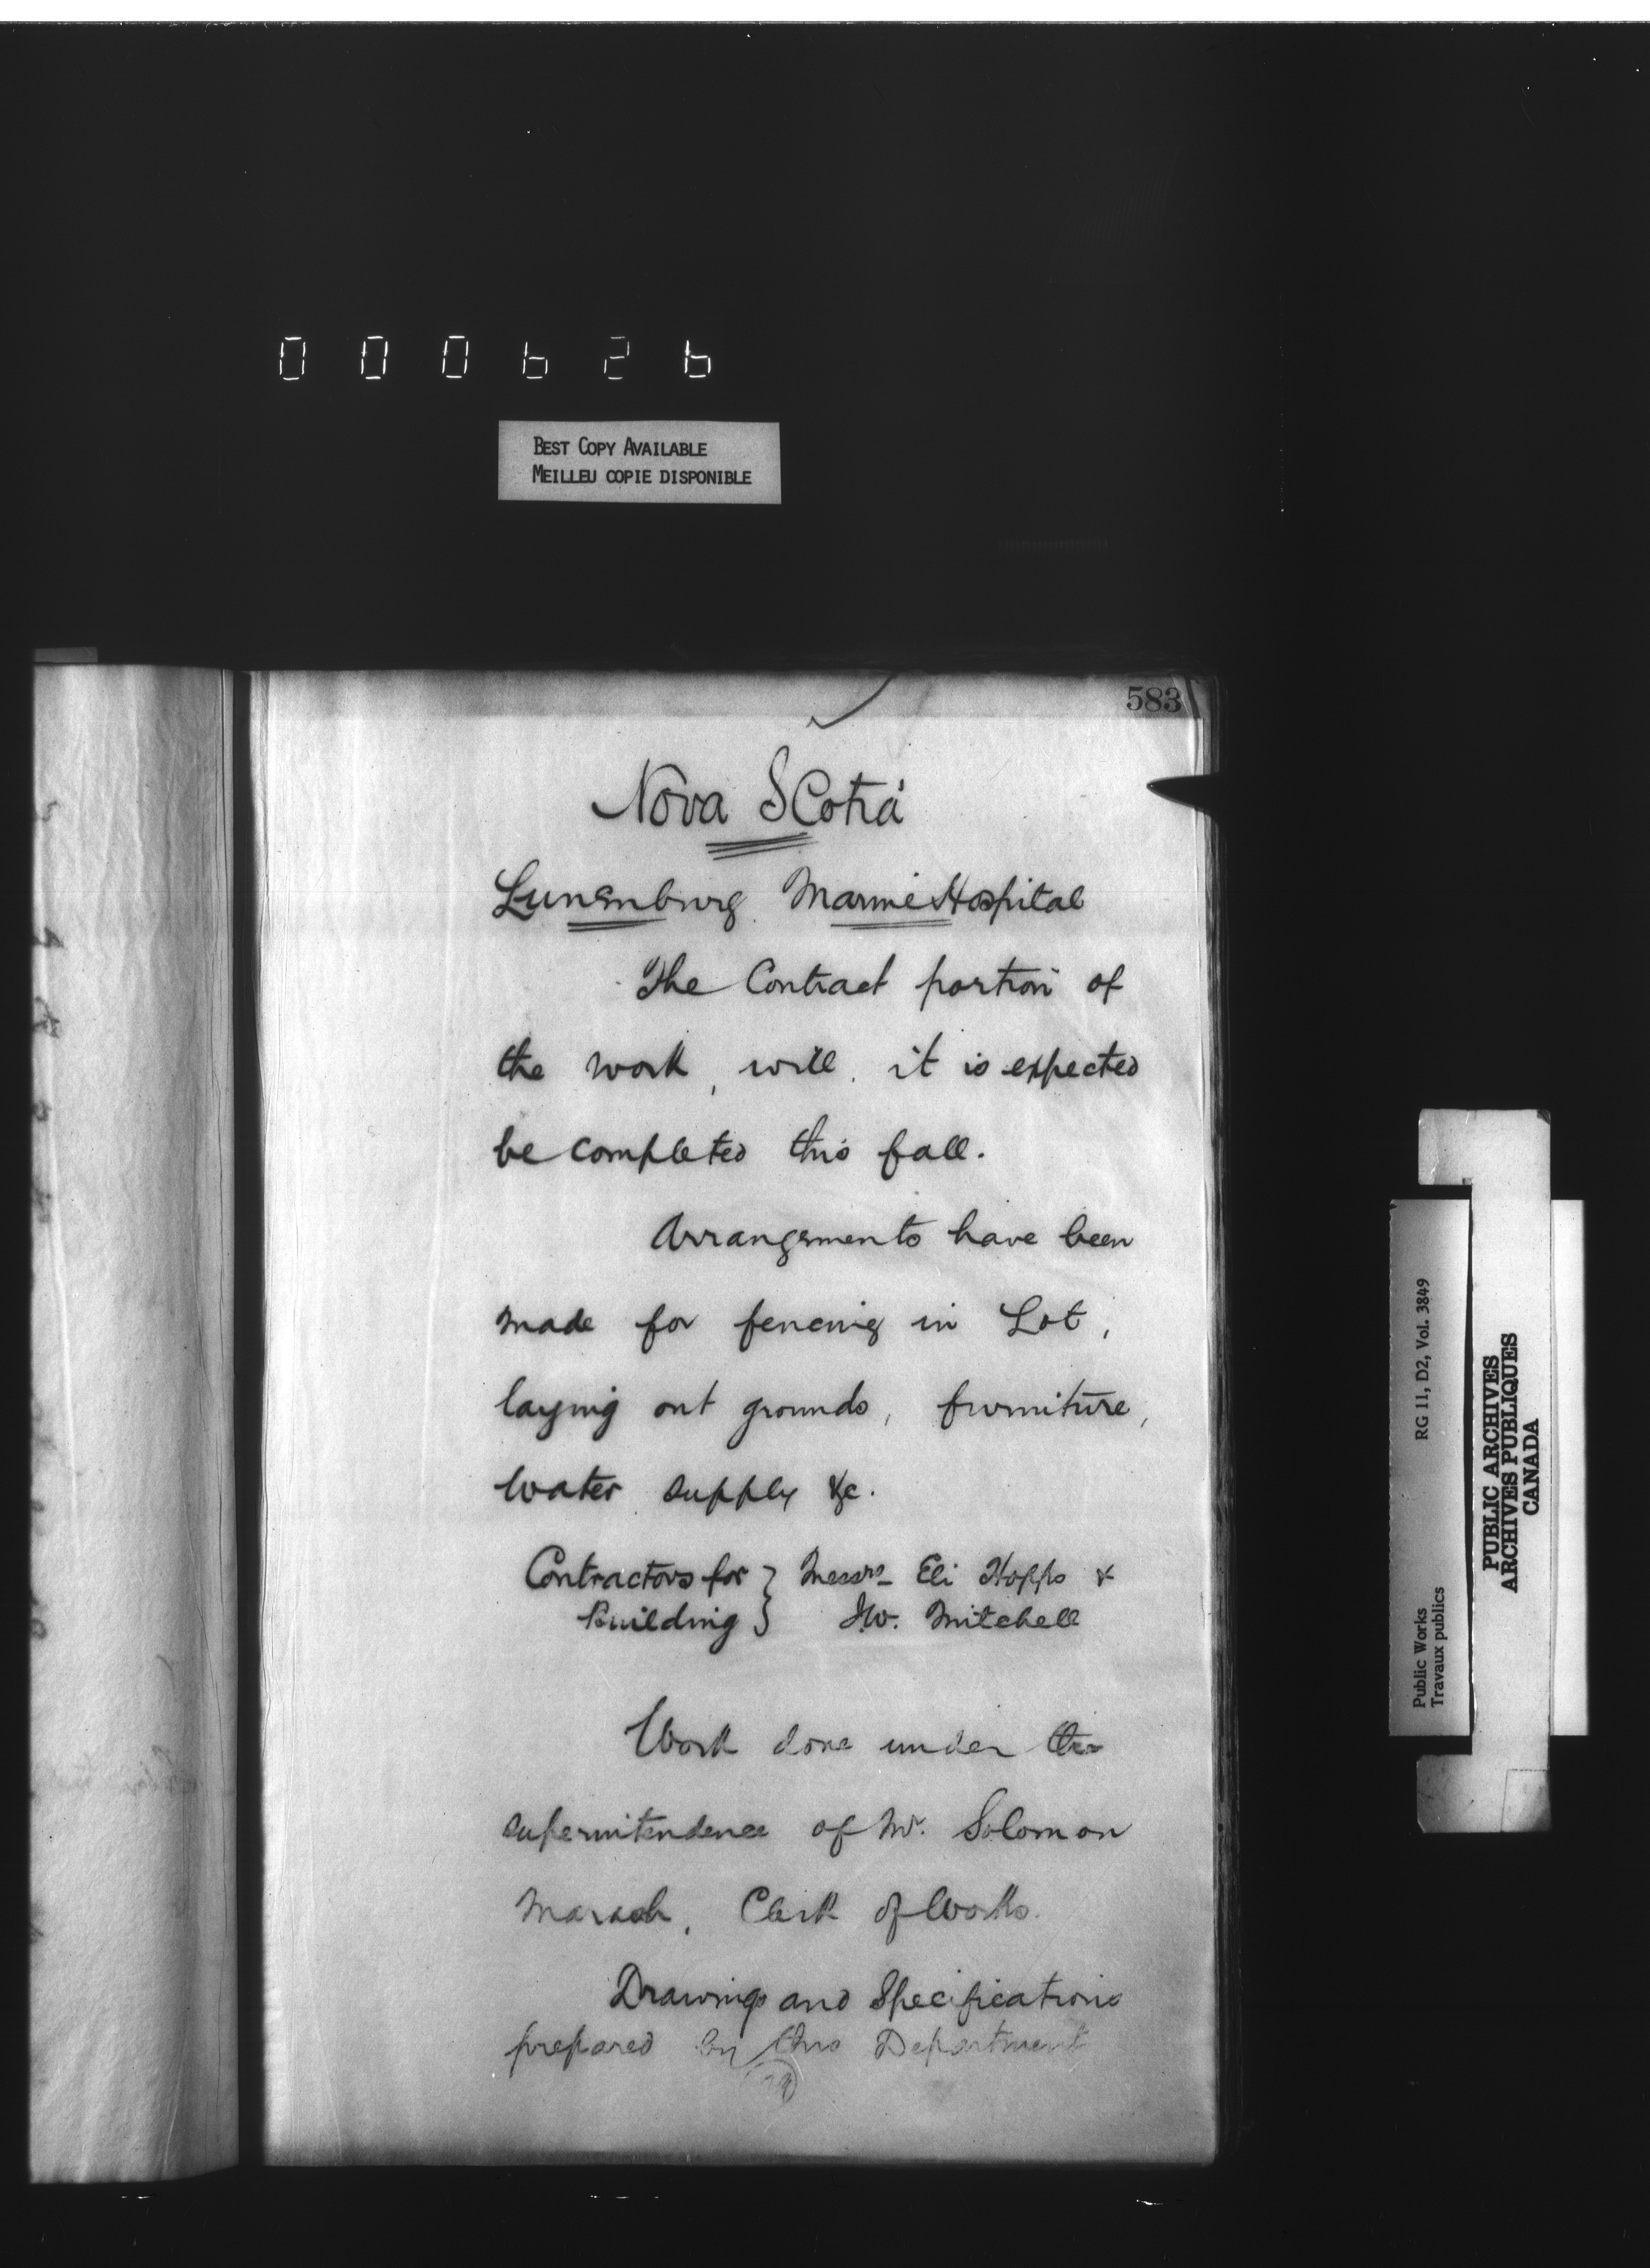 000626
BEST COPY AVAILABLE
MEILLEU COPIE DISPONIBLE
583
Nova Scotia
Lunenburg Marine Hospital
The Contract portion of
the work, will, it is expected
be completed this fall.
Arrangements have been
made for fencing in Lot,
laying out grounds, furniture,
water supply &c.
Contractors for } Messrs Eli Hopps &
Building } J.W. Mitchell
Work done under the
superintendence of Mr. Solomon
Clerk of Works.
Drawings and Specifications
prepared by this Department
Public Works RG 11, D2, Vol. 3849
Travaux publics
PUBLIC ARCHIVES
ARCHIVES PUBLIQUES
CANADA